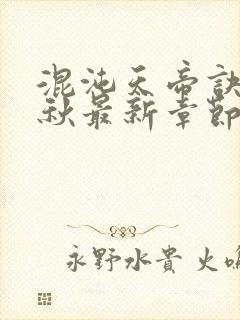 混沌天帝訣
秋最新章節
永野水貴 火鳴